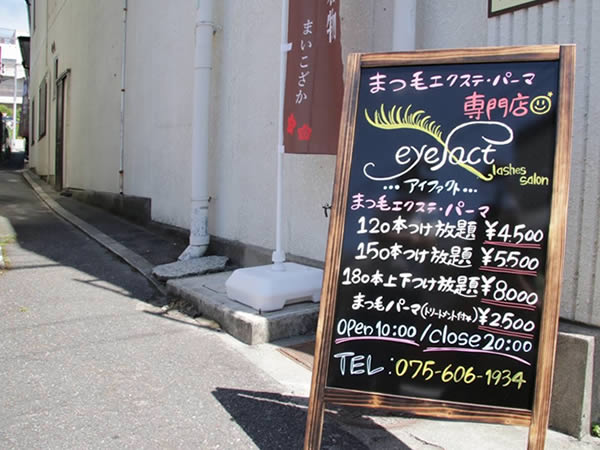 物
まいこざか
まつ毛エクステ・パーマ
専門店
eyefact
lashes
salon
...アイファクト...
まつ毛エクステ・パーマ
120本つけ放題 ¥4.500
150本つけ放題 ¥5500
180本上下つけ放題 ¥8,000
まつ毛パーマ(トリートメント付き) ¥2.500
Open 10:00 / Close 20:00
TEL: 075-606-1934